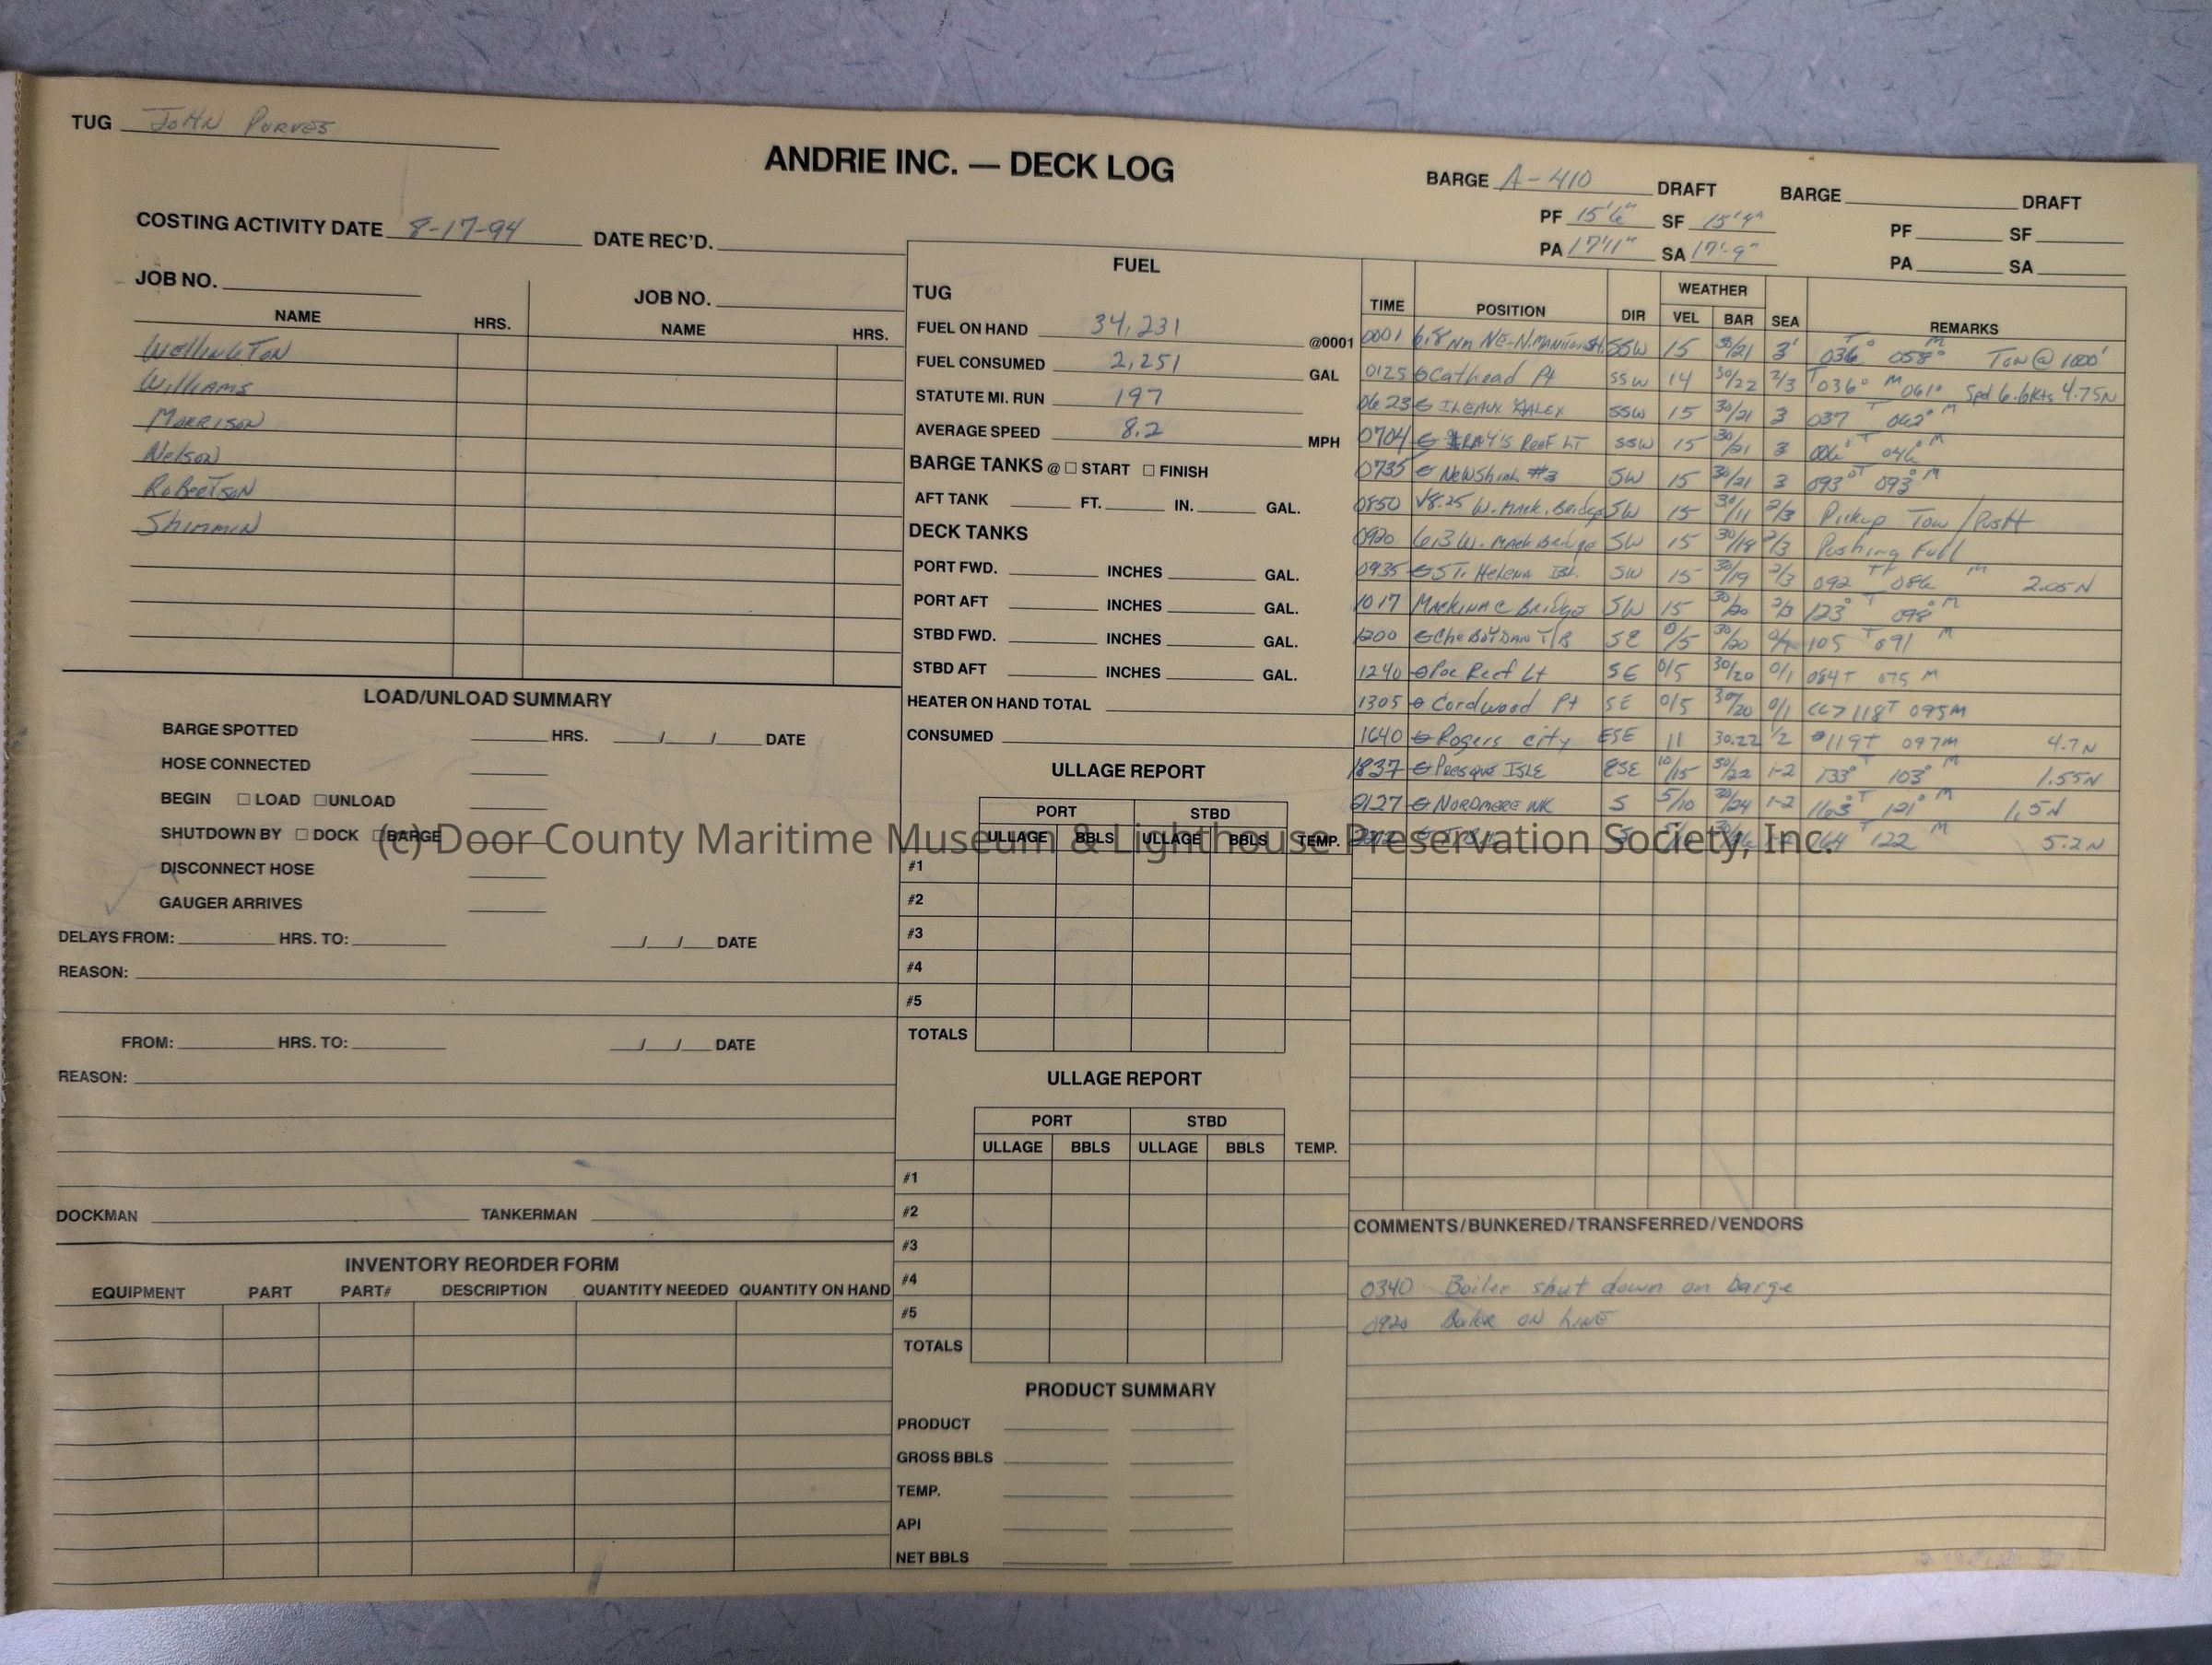 TUG JOHN PURVES
ANDRIE INC. — DECK LOG
BARGE A-410 DRAFT BARGE DRAFT
PF 15'6" SF 15'9" PF SF
PA 17'11" SA 17'-9" PA SA
COSTING ACTIVITY DATE 8-17-94 DATE REC'D.
JOB NO. JOB NO.
NAME HRS. NAME HRS.
Wellington
Williams
Morrison
Nelson
Robertson
Shimmin
LOAD/UNLOAD SUMMARY
BARGE SPOTTED HRS. / / DATE
HOSE CONNECTED
BEGIN ☐ LOAD ☐ UNLOAD
SHUTDOWN BY ☐ DOCK ☐ BARGE
DISCONNECT HOSE
GAUGER ARRIVES
DELAYS FROM: HRS. TO: / / DATE
REASON:
FROM: HRS. TO: / / DATE
REASON:
DOCKMAN TANKERMAN
INVENTORY REORDER FORM
EQUIPMENT PART PART# DESCRIPTION QUANTITY NEEDED QUANTITY ON HAND
FUEL
TUG
FUEL ON HAND 34,231 @0001
FUEL CONSUMED 2,251 GAL
STATUTE MI. RUN 197
AVERAGE SPEED 8.2 MPH
BARGE TANKS @ ☐ START ☐ FINISH
AFT TANK FT. IN. GAL.
DECK TANKS
PORT FWD. INCHES GAL.
PORT AFT INCHES GAL.
STBD FWD. INCHES GAL.
STBD AFT INCHES GAL.
HEATER ON HAND TOTAL
CONSUMED
ULLAGE REPORT
PORT STBD
ULLAGE BBLS ULLAGE BBLS TEMP.
#1
#2
#3
#4
#5
TOTALS
ULLAGE REPORT
PORT STBD
ULLAGE BBLS ULLAGE BBLS TEMP.
#1
#2
#3
#4
#5
TOTALS
PRODUCT SUMMARY
PRODUCT
GROSS BBLS
TEMP.
API
NET BBLS
WEATHER
TIME POSITION DIR VEL BAR SEA REMARKS
0001 6.8 nm NE-N. SSW 15 30/21 3' 036° T 058° M Tow @ 1000'
0125 Cathead Pt SSW 14 30/22 2/3 T 036° M 061° Spd 6.6kts 4.75N
0623 SSW 15 30/21 3 037 T 062° M
0704 Gray's Reef LT SSW 15 30/21 3 006° T 046° M
0735 New Shoal #3 SW 15 30/21 3 093° T 093° M
0850 8.25 W. Mack. Bridge SW 15 30/11 2/3 Pickup Tow / Push
0920 6.3 W. Mack Bridge SW 15 30/18 2/3 Pushing Full
0935 St. Helena Isl. SW 15 30/19 2/3 092 T 086 M 2.05N
1017 Mackinac Bridge SW 15 30/20 2/3 123° T 098° M
1200 Cheboygan T/B SE 0/5 30/20 105 T 091 M
1240 Poe Reef Lt SE 0/5 30/20 0/1 084T 075 M
1305 Cordwood Pt SE 0/5 30/20 0/1 cc> 118T 095M
1640 Rogers city ESE 11 30.22 1/2 119T 097M 4.7N
1837 Presque Isle ESE 10/15 30/22 1-2 133° T 103° M 1.55N
2127 Nordmere WK S 5/10 30/24 1-2 163° T 121° M 1.5N
S 164 T 122 M 5.2N
COMMENTS/BUNKERED/TRANSFERRED/VENDORS
0340 Boiler shut down on barge
0920 Boiler on line
(c) Door County Maritime Museum & Lighthouse Preservation Society, Inc.